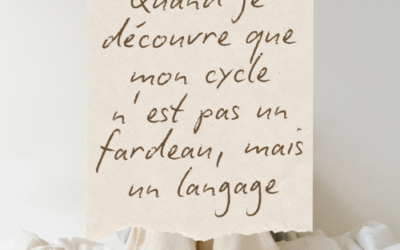 Quand je
découvre que
mon cycle
n'est pas un
fardeau, mais
un langage